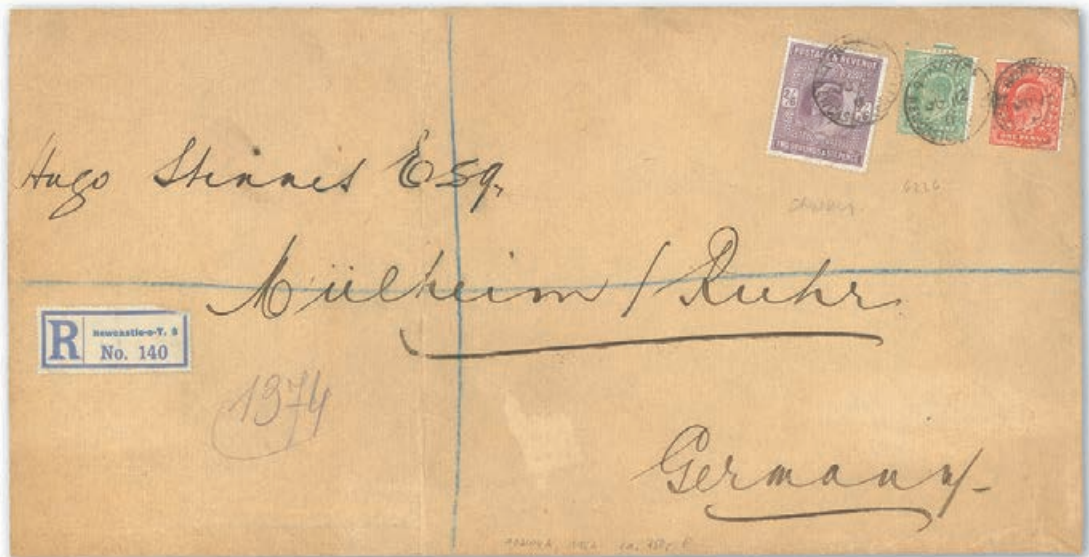 POSTAGE & REVENUE
2/6
TWO SHILLINGS & SIX PENCE
ONE PENNY
Hugo Stinnes Esq,
6226
Mülheim / Ruhr
R
Newcastle-o-T. 8
No. 140
1974
Germany